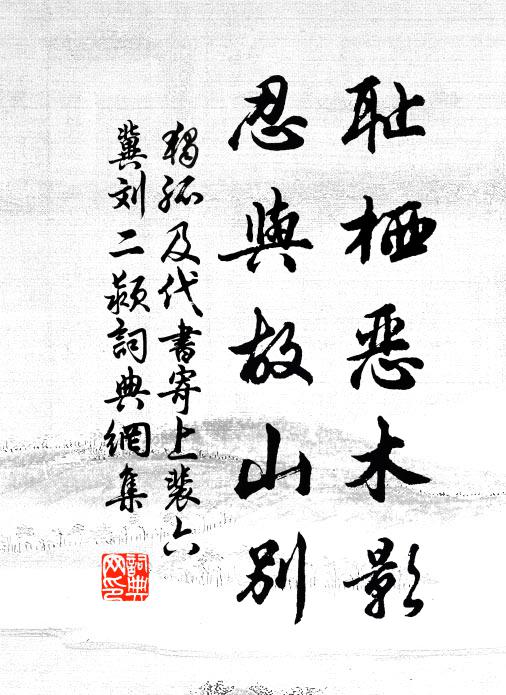 耻栖恶木影
忍與故山别
獨孤及代書寄上裴六
冀刘二颍詞典網集
詞典网印